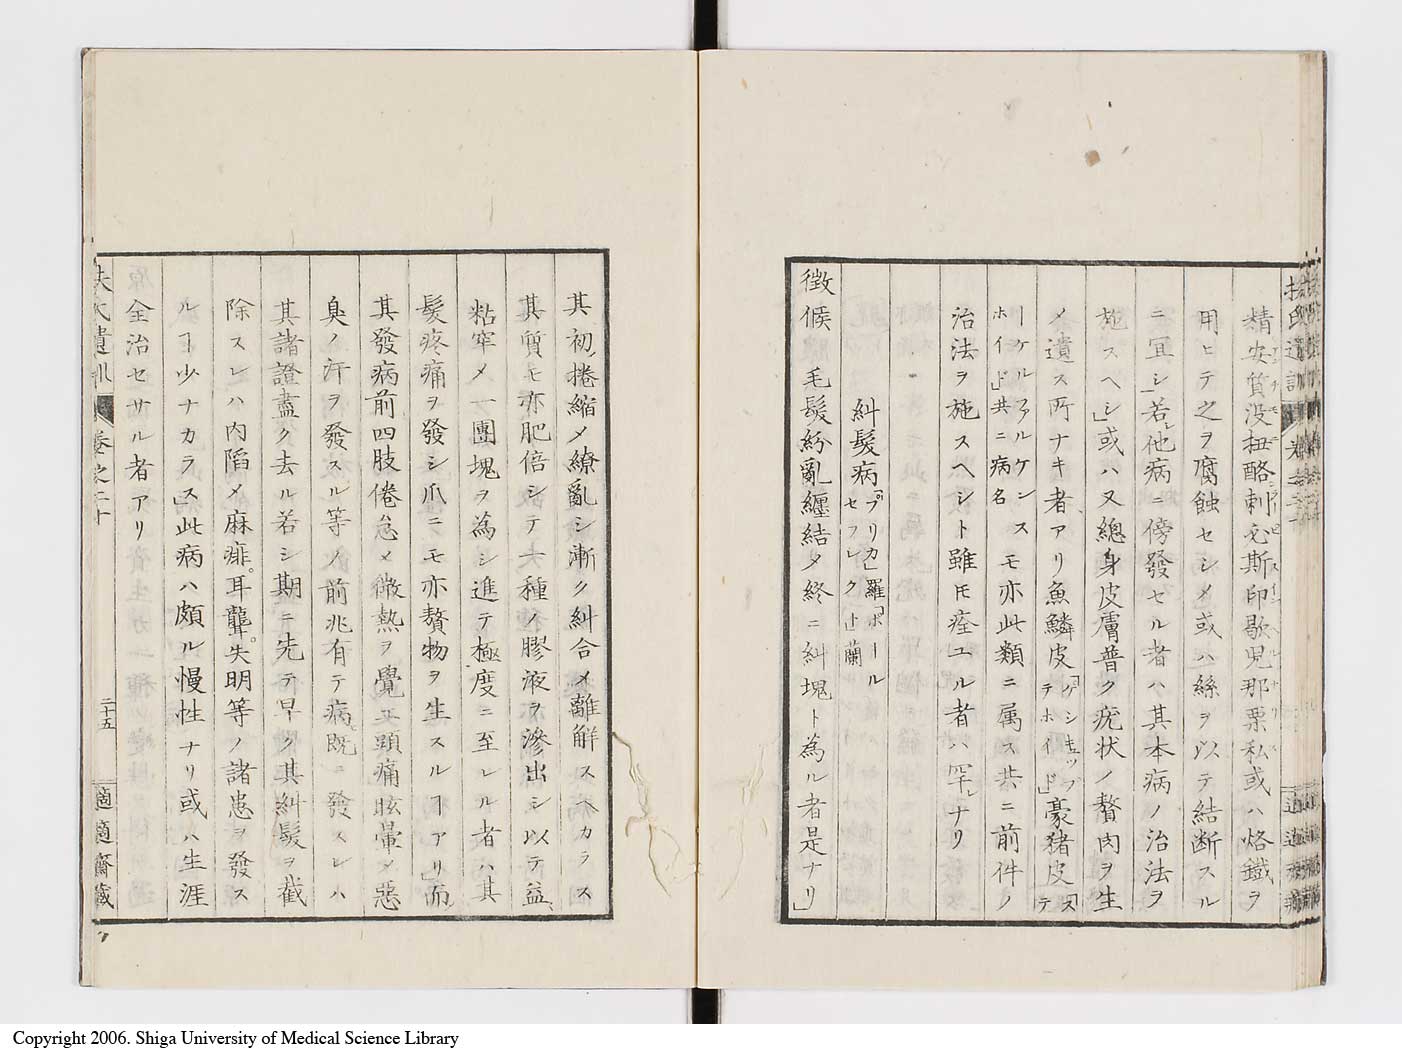 扶氏遺訓
精安質没扭酪刺必斯印歇児那栗私或ハ烙鐵ヲ
用ヒテ之ヲ腐蝕セシメ或ハ絲ヲ以テ結断スル
ニ冝シ」若シ他病ニ傍發セル者ハ其本病ノ治法ヲ
施スヘシ」或ハ又總身皮膚普ク疣状ノ贅肉ヲ生
メ遺ス所ナキ者アリ魚鱗皮「ゲシキュップテホイド」豪猪皮「ステ
ーケルファルケンスホイド」共ニ病名モ亦此類ニ属ス共ニ前件ノ
治法ヲ施スヘシト雖モ痊ユル者ハ罕レナリ
糾髮病「プリカ」羅「ポールセフレクト」蘭
徴候毛髮紛亂纏結メ終ニ糾塊ト為ル者是ナリ」
其初メ捲縮メ繚亂シ漸ク糾合メ離解スヘカラス
其質モ亦肥倍シテ大種ノ膠液ヲ滲出シ以テ益
粘牢メ一團塊ヲ為シ進テ極度ニ至レル者ハ其
髮疼痛ヲ發シ爪ニモ亦贅物ヲ生スルヿアリ」而
其發病前四肢倦怠メ微熱ヲ覺エ頭痛眩暈メ惡
臭ノ汗ヲ發スル等ノ前兆有テ病既ニ發スレハ
其諸證盡ク去ル若シ期ニ先テ早ク其糾髮ヲ截
除スレハ内陷メ麻痺。耳聾。失明等ノ諸患ヲ發ス
ルヿ少ナカラス」此病ハ頗ル慢性ナリ或ハ生涯
全治セサル者アリ
扶氏遺訓 卷之二十 二十五 適適齋藏
Copyright 2006. Shiga University of Medical Science Library